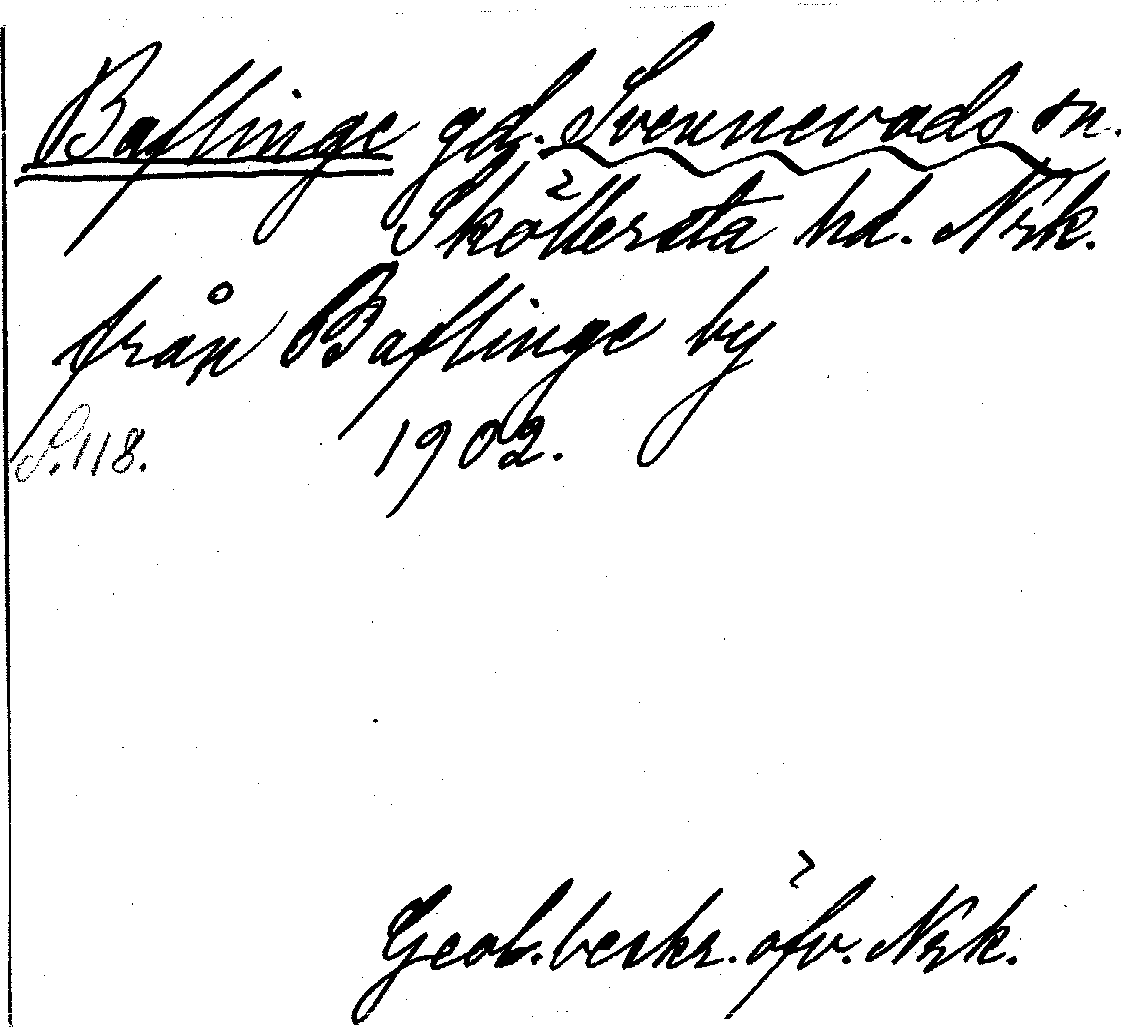 Baflinge gd. Svennevads sn.
Sköllersta hd. Nrk.
från Baflinge by
S. 118. 1902.
Geob. beskr. öfv. Nrk.